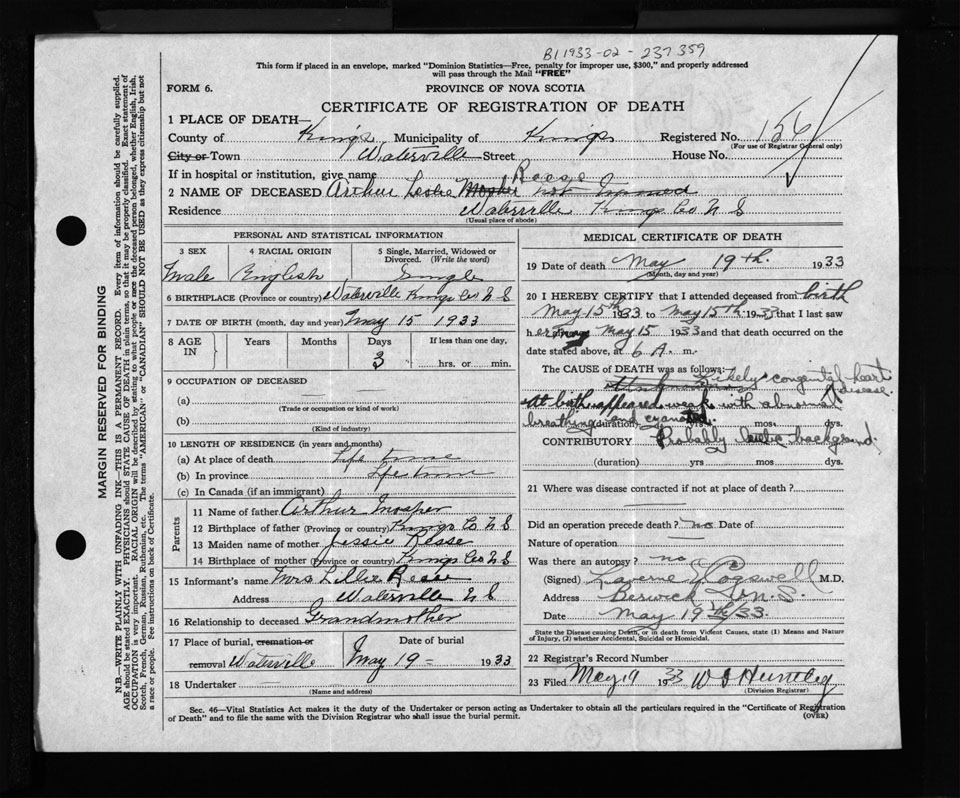 B1 1933-02-237359
This form if placed in an envelope, marked "Dominion Statistics—Free, penalty for improper use, $300," and properly addressed
will pass through the Mail "FREE"
FORM 6.
PROVINCE OF NOVA SCOTIA
CERTIFICATE OF REGISTRATION OF DEATH
1 PLACE OF DEATH—
County of Kings Municipality of Kings Registered No. 156
(For use of Registrar General only)
City or Town Waterville Street House No.
If in hospital or institution, give name Reese
2 NAME OF DECEASED Arthur Leslie Mosher not
Residence Waterville Kings Co N S
(Usual place of abode)
MARGIN RESERVED FOR BINDING
N.B.—WRITE PLAINLY WITH UNFADING INK—THIS IS A PERMANENT RECORD. Every item of information should be carefully supplied.
AGE should be stated EXACTLY. PHYSICIANS should STATE CAUSE OF DEATH in plain terms, so that it may be properly classified. Exact statement of
OCCUPATION is very important. RACIAL ORIGIN will be described by stating to what people or race the deceased person belonged, whether English, Irish,
Scotch, French, German, Russian, Ruthenian, etc. The terms "AMERICAN" or "CANADIAN" SHOULD NOT BE USED as they express citizenship but not
a race or people. See instructions on back of Certificate.
PERSONAL AND STATISTICAL INFORMATION
3 SEX
4 RACIAL ORIGIN
5 Single, Married, Widowed or
Divorced. (Write the word)
Male English Single
6 BIRTHPLACE (Province or country) Waterville Kings Co N S
7 DATE OF BIRTH (month, day and year) May 15 1933
8 AGE IN
Years Months Days If less than one day,
3 hrs. or min.
9 OCCUPATION OF DECEASED
(a) —
(Trade or occupation or kind of work)
(b)
(Kind of industry)
10 LENGTH OF RESIDENCE (in years and months)
(a) At place of death Life time
(b) In province Life time
(c) In Canada (if an immigrant)
Parents
11 Name of father Arthur Mosher
12 Birthplace of father (Province or country) Kings Co N S
13 Maiden name of mother Jessie Reese
14 Birthplace of mother (Province or country) Kings Co N S
15 Informant's name Mrs Lillie Reese
Address Waterville N S
16 Relationship to deceased Grandmother
17 Place of burial, cremation or Date of burial
removal Waterville May 19 — 1933
18 Undertaker —
(Name and address)
MEDICAL CERTIFICATE OF DEATH
19 Date of death May 19th. 1933
(Month, day and year)
20 I HEREBY CERTIFY that I attended deceased from birth
May 15th 1933 to May 15th 1933 that I last saw
h May 15 1933 and that death occurred on the
date stated above, at 6 A. m.
The CAUSE OF DEATH was as follows:
Likely congenital heart
disease.
At birth appeared weak with abnormal
breathing and cyanosed.
(duration) yrs mos. dys.
CONTRIBUTORY Probably luetic background.
(duration) yrs mos dys.
21 Where was disease contracted if not at place of death?
—
Did an operation precede death? no Date of
Nature of operation —
Was there an autopsy? no
(Signed) Laverne Cogswell M.D.
Address Berwick N.S.
Date May 19th/33.
State the Disease causing Death, or in death from Violent Causes, state (1) Means and Nature
of Injury, (2) whether Accidental, Suicidal or Homicidal.
22 Registrar's Record Number
23 Filed May 19 1933 W
(Division Registrar)
Sec. 46—Vital Statistics Act makes it the duty of the Undertaker or person acting as Undertaker to obtain all the particulars required in the "Certificate of Registration
of Death" and to file the same with the Division Registrar who shall issue the burial permit.
(OVER)